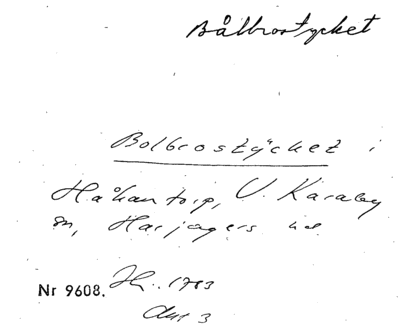 Bålbrostycket
Bolbrostycket i
Håkantorp, V. Karaby
sn, Harjagers hd
Nr 9608. Hi. 1783
Akt 3